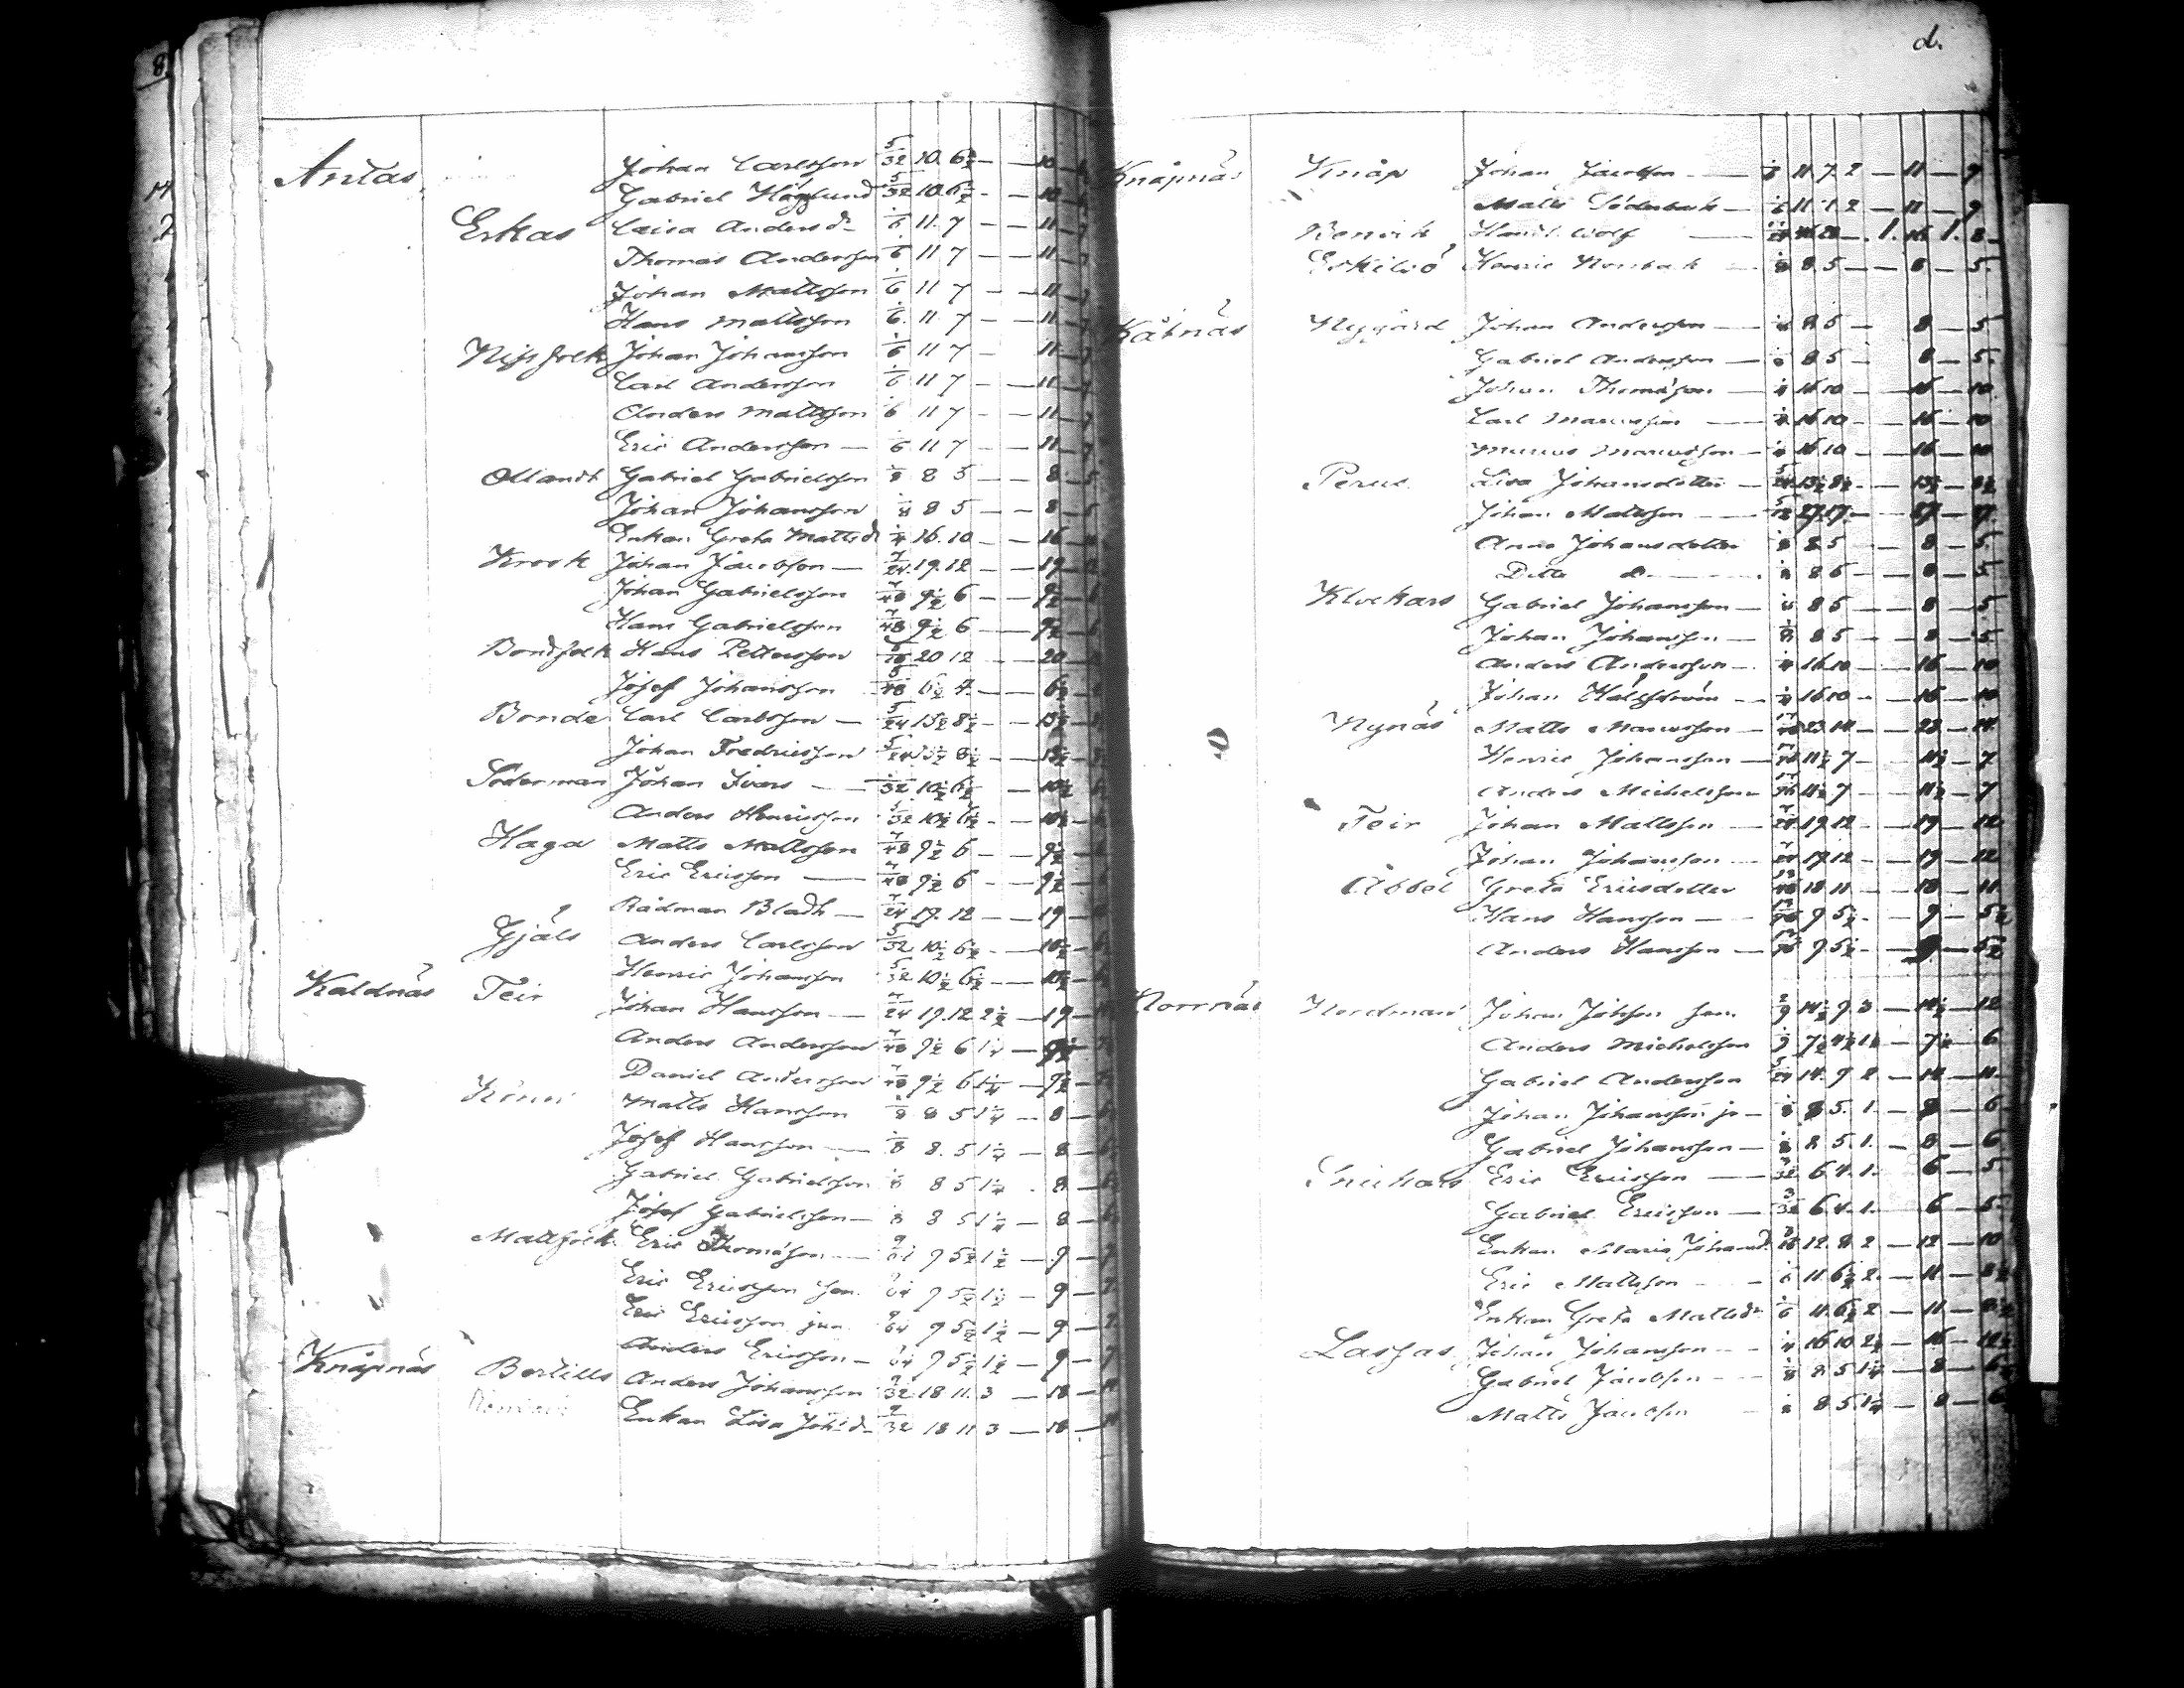 8
d.
Antas Johan Carlsson 5/32 10. 6½ — — 10
Gabriel Höglund 5/32 10. 6½ - — 10
Erkas Caisa Andersd 1/6 11. 7 — — 11
Thomas Andersson 1/6 11 7 — — 11
Johan Mattsson 1/6 11 7 — — 11
Hans Mattsson 1/6 11 7 — — 11
Nissfolk Johan Johansson 1/6 11 7 — 11
Carl Andersson 1/6 11 7 — — 11
Anders Mattsson 1/6 11 7 — — 11
Eric Andersson — 1/6 11 7 — — 11
Gabriel Gabrielsson 1/8 8 5 — 8 5
Johan Johansson 1/8 8 5 — — 8 5
Enkan Greta Mattsd 1/4 16. 10 — — 16
Krook Johan Jacobson — 7/24 19. 12 — — 19
Johan Gabrielsson 7/48 9½ 6 — — 9½
Hans Gabrielsson 7/48 9½ 6 — — 9½
Bondfolk Hans Pettersson 5/16 20 12 — 20
Josef Johansson 5/48 6½ 4 — — 6½
Bonde Carl Carlsson — 5/24 13½ 8½ — — 13½
Johan Fredricsson 5/24 13½ 8½ — — 13½
Söderman Johan Ivars — 5/32 10½ 6½ — 10½
Anders Henricsson 5/32 10½ 6½ - — 10½
Haga Matts Mattsson 7/48 9½ 6 — — 9½
Eric Ericsson — 7/48 9½ 6 - — 9½
Rådman Bladh — 7/24 19. 12 — — 19
Gjäls Anders Carlsson 5/32 10½ 6½ - — 10½
Henric Johansson 5/32 10½ 6½ — — 10½
Kaldnäs Teir Johan Hansson — 7/24 19. 12 2½ — 19
Anders Andersson 7/48 9½ 6 1¼ — 9½
Daniel Andersson 7/48 9½ 6 1¼ — 9½
Matts Hansson 1/8 8 5 1¼ — 8
Josef Hansson — 1/8 8. 5 1¼ — 8
Gabriel Gabrielsson 1/8 8 5 1¼ - 8
Josef Gabrielsson — 1/8 8 5 1¼ — 8
Mattfolk Eric Thomasson — 9/64 9 5½ 1½ — 9
Eric Ericsson sen. 9/64 9 5½ 1½ — 9
Eric Ericsson jun 9/64 9 5½ 1½ — 9
Anders Ericsson — 9/64 9 5½ 1½ — 9
Knåpnäs Bertills Anders Johansson 9/32 18 11. 3 — 18
Enkan Lisa Joh:d 9/32 18 11 3 — 18
Knåpnäs Knåp Johan Jacobson — 1/6 11 7 2 — 11 — 9
Matts Söderback — 1/6 11 7 2 — 11 — 9
Wolf
Henric Norrback 1/8 8 5 — — 8 — 5
Kåtnäs Nygård Johan Andersson — 1/8 8 5 — 8 — 5
Gabriel Andersson — 1/8 8 5 — 8 — 5.
Johan Thomasson — 1/4 16 10 — 16 — 10
Carl Marcusson — 1/4 16 10 - — 16 — 10
Marcus Marcusson — 1/4 16 10 — 16 — 10
Perus Lisa Johansdotter — 5/24 13½ 8½ — 13½ — 8½
Johan Mattsson — 5/12 27. 17. — 27 — 17.
Anna Johansdotter 1/8 8 5 — — 8 — 5
Ditto d:o 1/8 8 5 — — 8 — 5
Klockars Gabriel Johansson — 1/8 8 5 — — 8 — 5
Johan Johansson — 1/8 8 5 — — 8 — 5
Anders Andersson — 1/4 16 10 — — 16 — 10
Johan 1/4 16 10 — — 16 — 10
Nynäs Matts Marcusson — 17/48 23. 14 — — 23 — 14
Henric Johansson — 17/96 11½ 7 — 11½ — 7
Anders Michelsson 17/96 11½ 7 — — 11½ — 7
Teir Johan Mattsson — 7/24 19. 12 — — 19 — 12
Johan Johansson 7/24 19 12 — — 19 — 12
Abbel Greta Ericsdotter 13/48 18 11 — — 18 — 11
Hans Hansson — 13/96 9 5½ - — 9 — 5½
Anders Hansson — 13/96 9 5½ - — 9 — 5½
Norrnäs Nordman Johan Johsson sen 2/9 14½ 9. 3 — 14½ — 12
Anders Michelsson 1/9 7½ 4½ 1½ — 7½ — 6
Gabriel Andersson 5/24 14. 9 2 — 14 — 11.
Johan Johansson jr — 1/8 8 5. 1. — 8 — 6
Gabriel Johansson — 1/8 8 5 1. — 8 — 6
Eric Ericsson — 3/32 6. 4. 1. 6 — 5
Gabriel Ericsson — 3/32 6. 4. 1. 6 — 5.
Enkan Maria Johansd. 3/16 12. 8 2 — 12 — 10
Eric Mattsson — 1/6 11. 6½ 2. — 11 — 8½
Enkan Greta Mattsd:r 1/6 11. 6½ 2 — 11 — 8½
Lassas Johan Johansson — 1/4 16 10 2½ — 16 — 12½
Gabriel Jacobson — 1/8 8. 5 1¼ — 8 — 6¼
Matts Jacobson 1/8 8 5 1¼ — 8 — 6